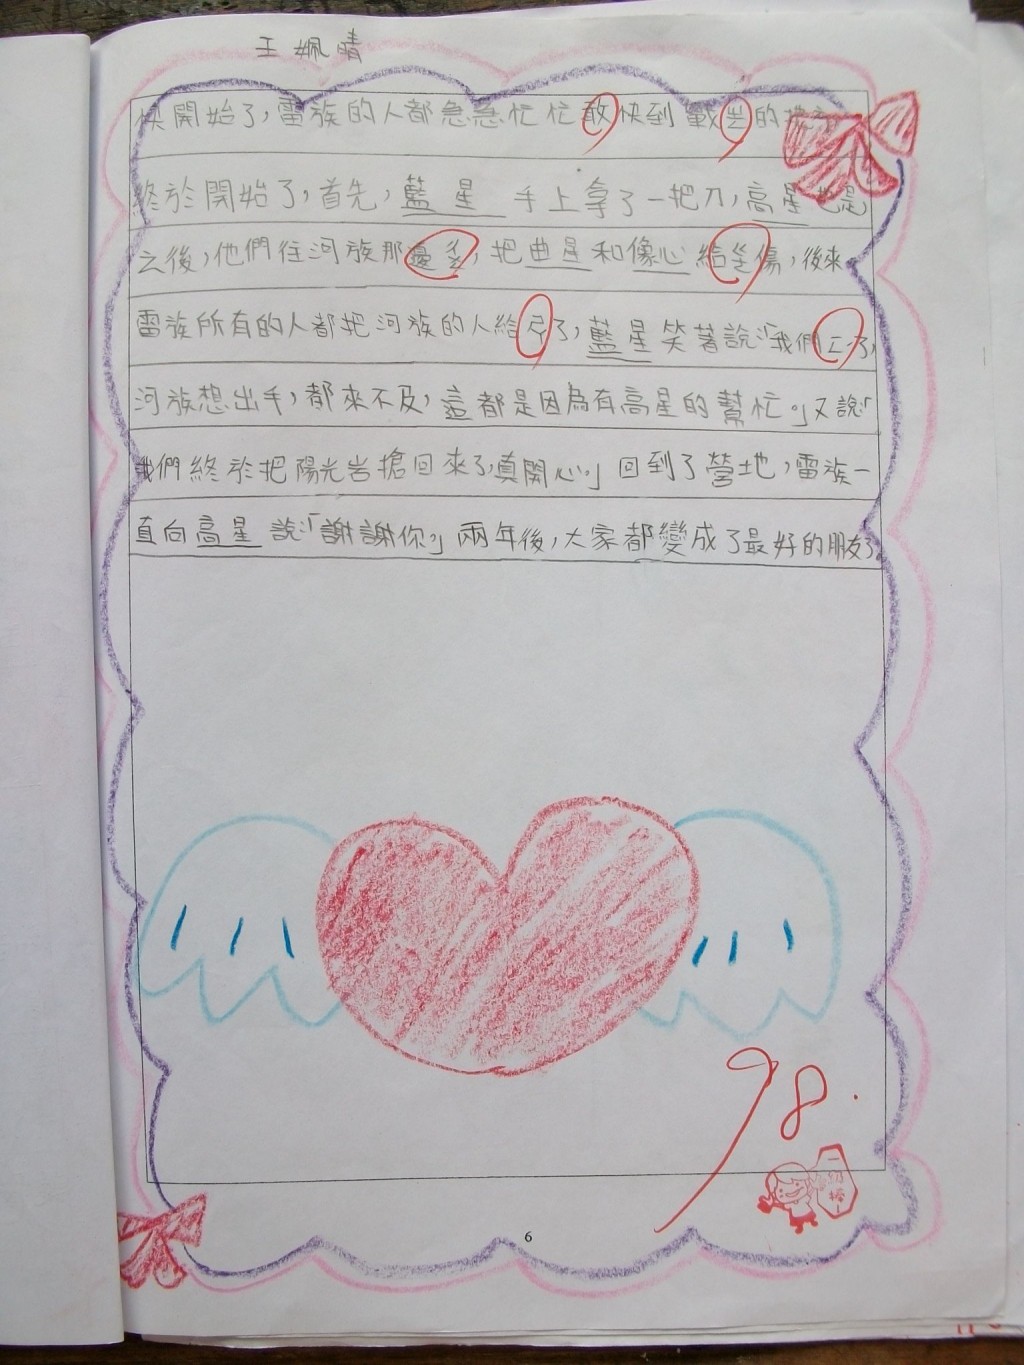 王姵晴
快開始了,雷族的人都急急忙忙敢快到戰岩的地方
終於開始了,首先,藍星 手上拿了一把刀,高星也是
之後,他們往河族那邊,把曲星和像心給傷,後來
雷族所有的人都把河族的人給了,藍星笑著說:「我們了,
河族想出手,都來不及,這都是因為有高星的幫忙。」又說:「
我們終於把陽光岩搶回來了,真開心。」回到了營地,雷族一
直向高星說:「謝謝你。」兩年後,大家都變成了最好的朋友了
98.
6